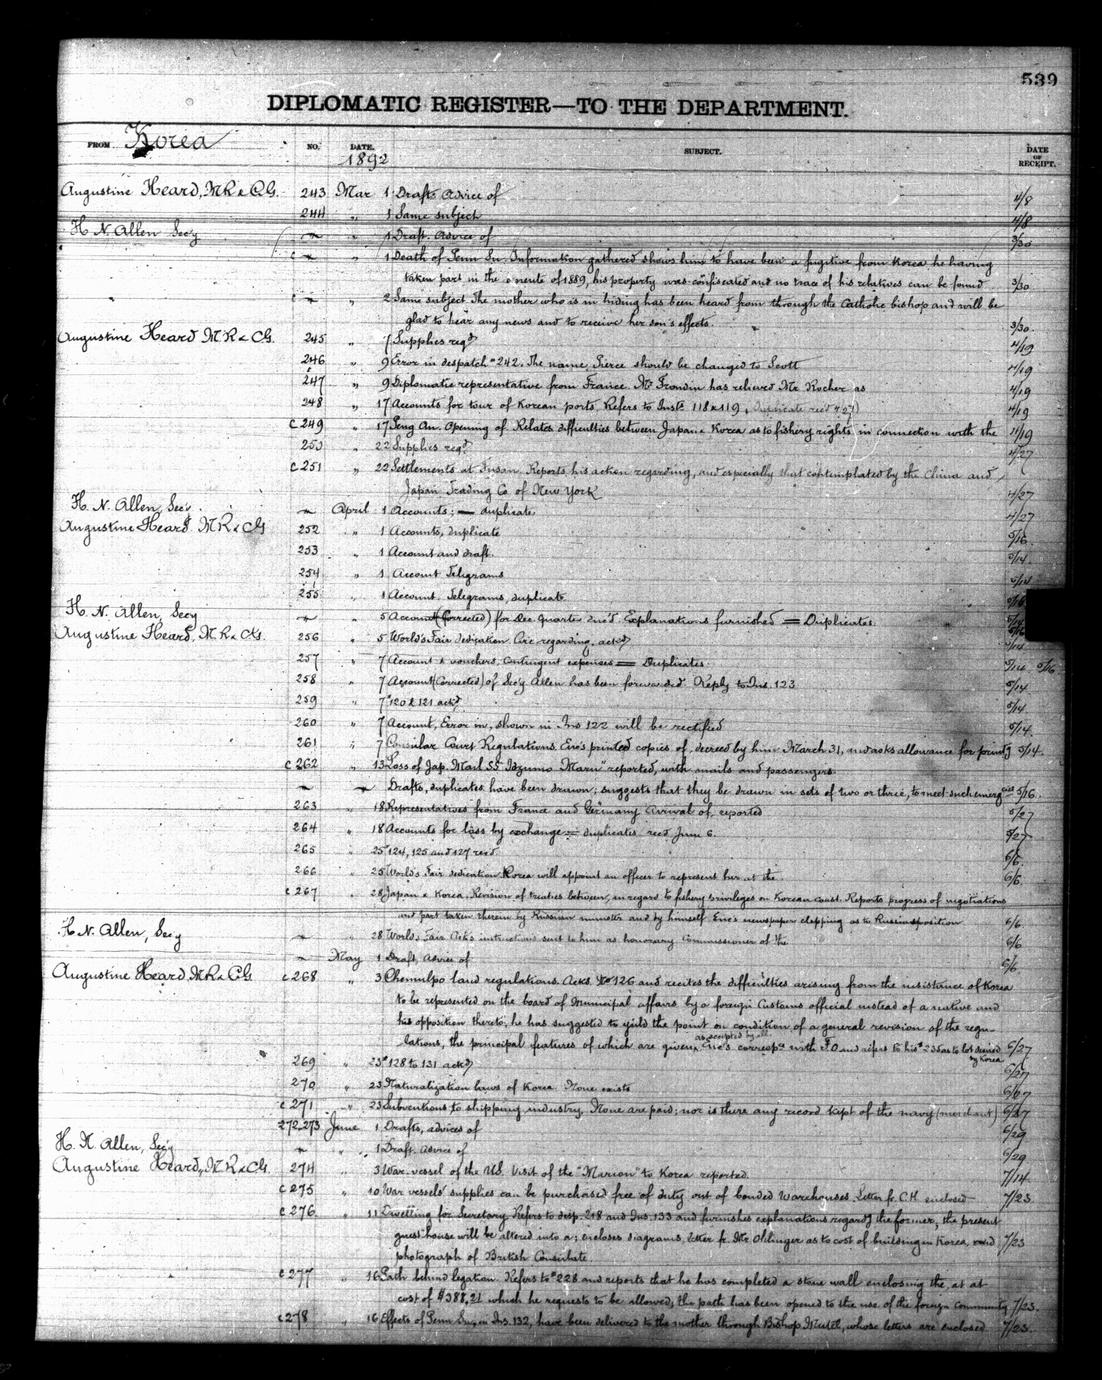 539
DIPLOMATIC REGISTER—TO THE DEPARTMENT.
FROM Korea NO. DATE. 1892 SUBJECT. DATE OF RECEIPT.
Augustine Heard, MR & CG. 243 Mar 1 Drafts Advice of 4/8
244 " 1 Same subject 4/8
H N Allen Sec'y — " 1 Draft. Advice of 3/30
c — " 1 Death of Penn Su. Information gathered shows him to have been a fugitive from Korea he having
taken part in the emeute of 1889, his property was confiscated and no trace of his relatives can be found 3/30
c — " 2 Same subject The mother who is in hiding has been heard from through the Catholic bishop and will be
glad to hear any news and to receive her son's effects. 3/30
Augustine Heard MR & CG. 245 " Supplies reqd 4/19
246 " 9 Error in despatch #242. The name Pierce should be changed to Scott 4/19
247 " 9 Diplomatic representative from France. Mr Frandin has relieved Mr Rocher as 4/19
248 " 17 Accounts for tour of Korean ports. Refers to Insts 118 & 119. Duplicate recd 4/19
c 249 " 17 Peng An. Opening of Relates difficulties between Japan & Korea as to fishery rights in connection with the 4/19
250 22 Supplies reqd 4/27
c 251 " 22 Settlements at Fusan. Reports his action regarding, and especially that contemplated by the China and
Japan Trading Co of New York 4/27
H. N. Allen, Sec'y — April 1 Accounts; — duplicate 4/27
Augustine Heard MR & CG 252 " 1 Accounts, duplicate 5/16
253 " 1 Account and draft. 5/14
254 " 1 Account Telegrams 5/14
255 " 1 Account. Telegrams, duplicate
H. N. Allen, Sec'y — " 5 Account (Corrected) for Dec Quarter Enc'd. Explanations furnished = Duplicates. 5/14
Augustine Heard, MR & CG. 256 " 5 World's Fair dedication Circ regarding, ackd 5/14
257 " 7 Account & vouchers, contingent expenses = Duplicates 5/14 5/16
258 " 7 Account (Corrected) of Sec'y Allen has been forwarded. Reply to Ins. 123 5/14
259 " 7 #120 & 121 ackd 5/14
260 " 7 Account, Error in, shown in Ins 122 will be rectified 5/14.
261 " 7 Consular Court Regulations. Enc's printed copies of, decreed by him March 31, and asks allowance for printg 5/14.
c 262 " 13 Loss of Jap. Mail SS "Idzumo Maru" reported, with mails and passengers.
— — Drafts, duplicates have been drawn; suggests that they be drawn in sets of two or three, to meet such emergcies 5/16.
263 " 18 Representatives from France and Germany Arrival of, reported 5/27
264 " 18 Accounts for loss by exchange = duplicates recd June 6. 5/27
265 25 #124, 125 and 127 recd 6/6.
266 " 25 World's Fair dedication Korea will appoint an officer to represent her at the 6/6.
c 267 " 28 Japan & Korea. Revision of treaties between, in regard to fishery privileges on Korean coast. Reports progress of negotiations
and part taken therein by Russian minister and by himself. Enc's newspaper clipping as to Russian position 6/6
H. N. Allen, Sec'y — " 28 World's Fair Ack's instructions sent to him as honorary Commissioner of the 6/6
— May 1 Draft, advice of 6/6.
Augustine Heard, MR & CG c 268 " 3 Chemulpo land regulations. Acks No 126 and recites the difficulties arising from the insistance of Korea
to be represented on the board of municipal affairs by a foreign Customs official instead of a native and
his opposition thereto; he has suggested to yield the point on condition of a general revision of the regu-
lations, the principal features of which are given, as accepted by all. Enc's corresp. with F.O and refers to his #235 as to lot desired by Korea 6/27
269 " 23 #128 to 131 ackd 6/27
270 " 23 Naturalization laws of Korea None exists 6/27
c 271 " 23 Subventions to shipping industry. None are paid; nor is there any record kept of the navy (merchant) 6/27
272, 273 June 1 Drafts, advices of 6/29
H. N. Allen, Sec'y — " 1 Draft. Advice of 6/29
Augustine Heard, MR & CG. 274 " 3 War. vessel of the U.S. Visit of the "Marion" to Korea reported. 7/14
c 275 " 10 War vessels' supplies can be purchased free of duty out of bonded warehouses. Letter fr. CH enclosed 7/23.
c 276 " 11 Dwelling for Secretary Refers to desp. 218 and Ins. 133 and furnishes explanations regardg the former, the present
guest house will be altered into a; encloses diagrams, letter fr. Mr Ohlinger as to cost of building in Korea, and 7/23
photograph of British Consulate
c 277 " 16 Path behind legation. Refers to #228 and reports that he has completed a stone wall enclosing the, at at
cost of $388.21 which he requests to be allowed, the path has been opened to the use of the foreign community 7/23.
c 278 " 16 Effects of Penn Su, in Ins. 132, have been delivered to the mother through Bishop Mutel, whose letters are enclosed 7/23.